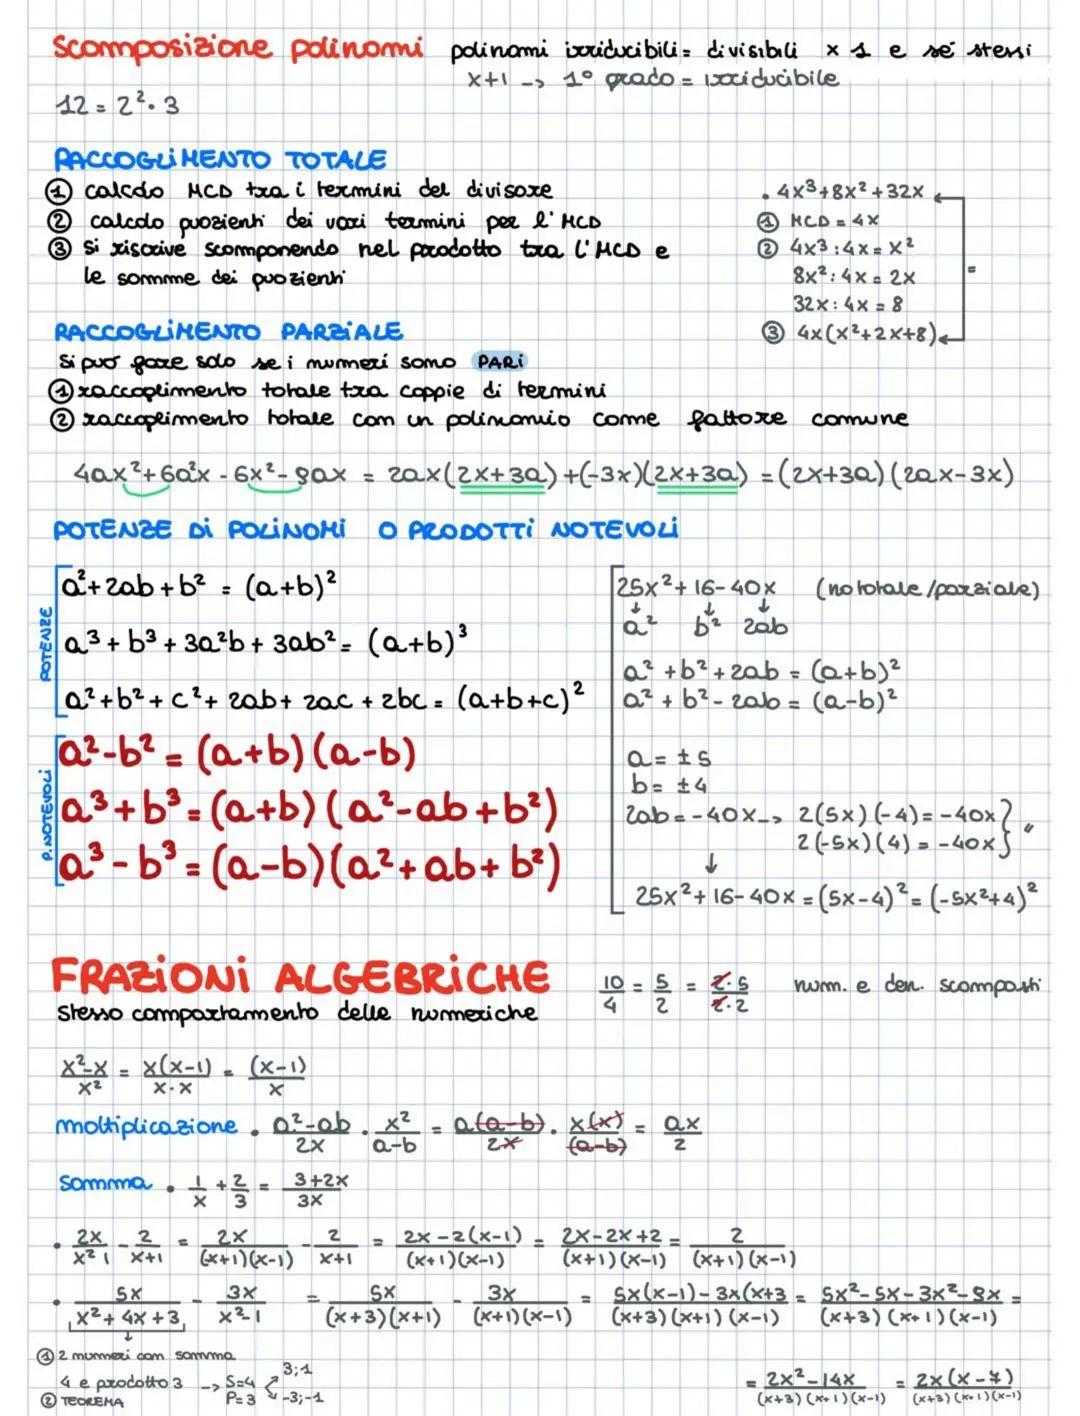 Scomposizione polinomi polinomi irriducibili = divisibili x 1 e sé stessi
x+1 -> 1° grado = irriducibile
12 = 2². 3
RACCOGLIMENTO TOTALE
① calcolo MCD tra i termini del divisore
② calcolo quozienti dei vari termini per l'MCD
③ si riscrive scomponendo nel prodotto tra l'MCD e
le somme dei quozienti
. 4x³+8x²+32x
① MCD = 4x
② 4x³:4x = x²
8x²:4x = 2x
32x:4x = 8
③ 4x(x²+2x+8)
=
RACCOGLIMENTO PARZIALE
Si può fare solo se i numeri sono PARI
① raccoglimento totale tra coppie di termini
② raccoglimento totale con un polinomio come fattore comune
4ax²+6a²x - 6x²- 9ax = 2ax(2x+3a)+(-3x)(2x+3a) = (2x+3a)(2ax-3x)
POTENZE Di POLINOMI O PRODOTTI NOTEVOLI
POTENZE
a²+2ab+b² = (a+b)²
a³+b³+3a²b+3ab² = (a+b)³
a²+b²+c²+2ab+2ac+2bc = (a+b+c)²
P. NOTEVOLI
a²-b² = (a+b)(a-b)
a³+b³ = (a+b)(a²-ab+b²)
a³-b³ = (a-b)(a²+ab+b²)
25x²+16-40x (no totale/parziale)
↓ ↓ ↓
a² b² 2ab
a²+b²+2ab = (a+b)²
a²+b²-2ab = (a-b)²
a = ±5
b = ±4
2ab = -40x -> 2(5x)(-4) = -40x } "
2(-5x)(4) = -40x
↓
25x²+16-40x = (5x-4)² = (-5x²+4)²
FRAZIONI ALGEBRICHE
stesso comportamento delle numeriche
10/4 = 5/2 = 2·5/2·2 num. e den. scomposti
x²-x/x² = x(x-1)/x·x = (x-1)/x
moltiplicazione . a²-ab/2x . x²/a-b = a(a-b)/2x . x(x)/(a-b) = ax/2
somma . 1/x + 2/3 = 3+2x/3x
. 2x/x² 1 - 2/x+1 = 2x/(x+1)(x-1) - 2/x+1 = 2x-2(x-1)/(x+1)(x-1) = 2x-2x+2/(x+1)(x-1) = 2/(x+1)(x-1)
. 5x/x²+4x+3 - 3x/x²-1 = 5x/(x+3)(x+1) - 3x/(x+1)(x-1) = 5x(x-1)-3x(x+3/(x+3)(x+1)(x-1) = 5x²-5x-3x²-9x/(x+3)(x+1)(x-1) =
↓
① 2 numeri con somma
4 e prodotto 3 -> S=4 3;1
P=3 -3;-1
② TEOREMA
= 2x²-14x/(x+3)(x+1)(x-1) = 2x(x-7)/(x+3)(x+1)(x-1)